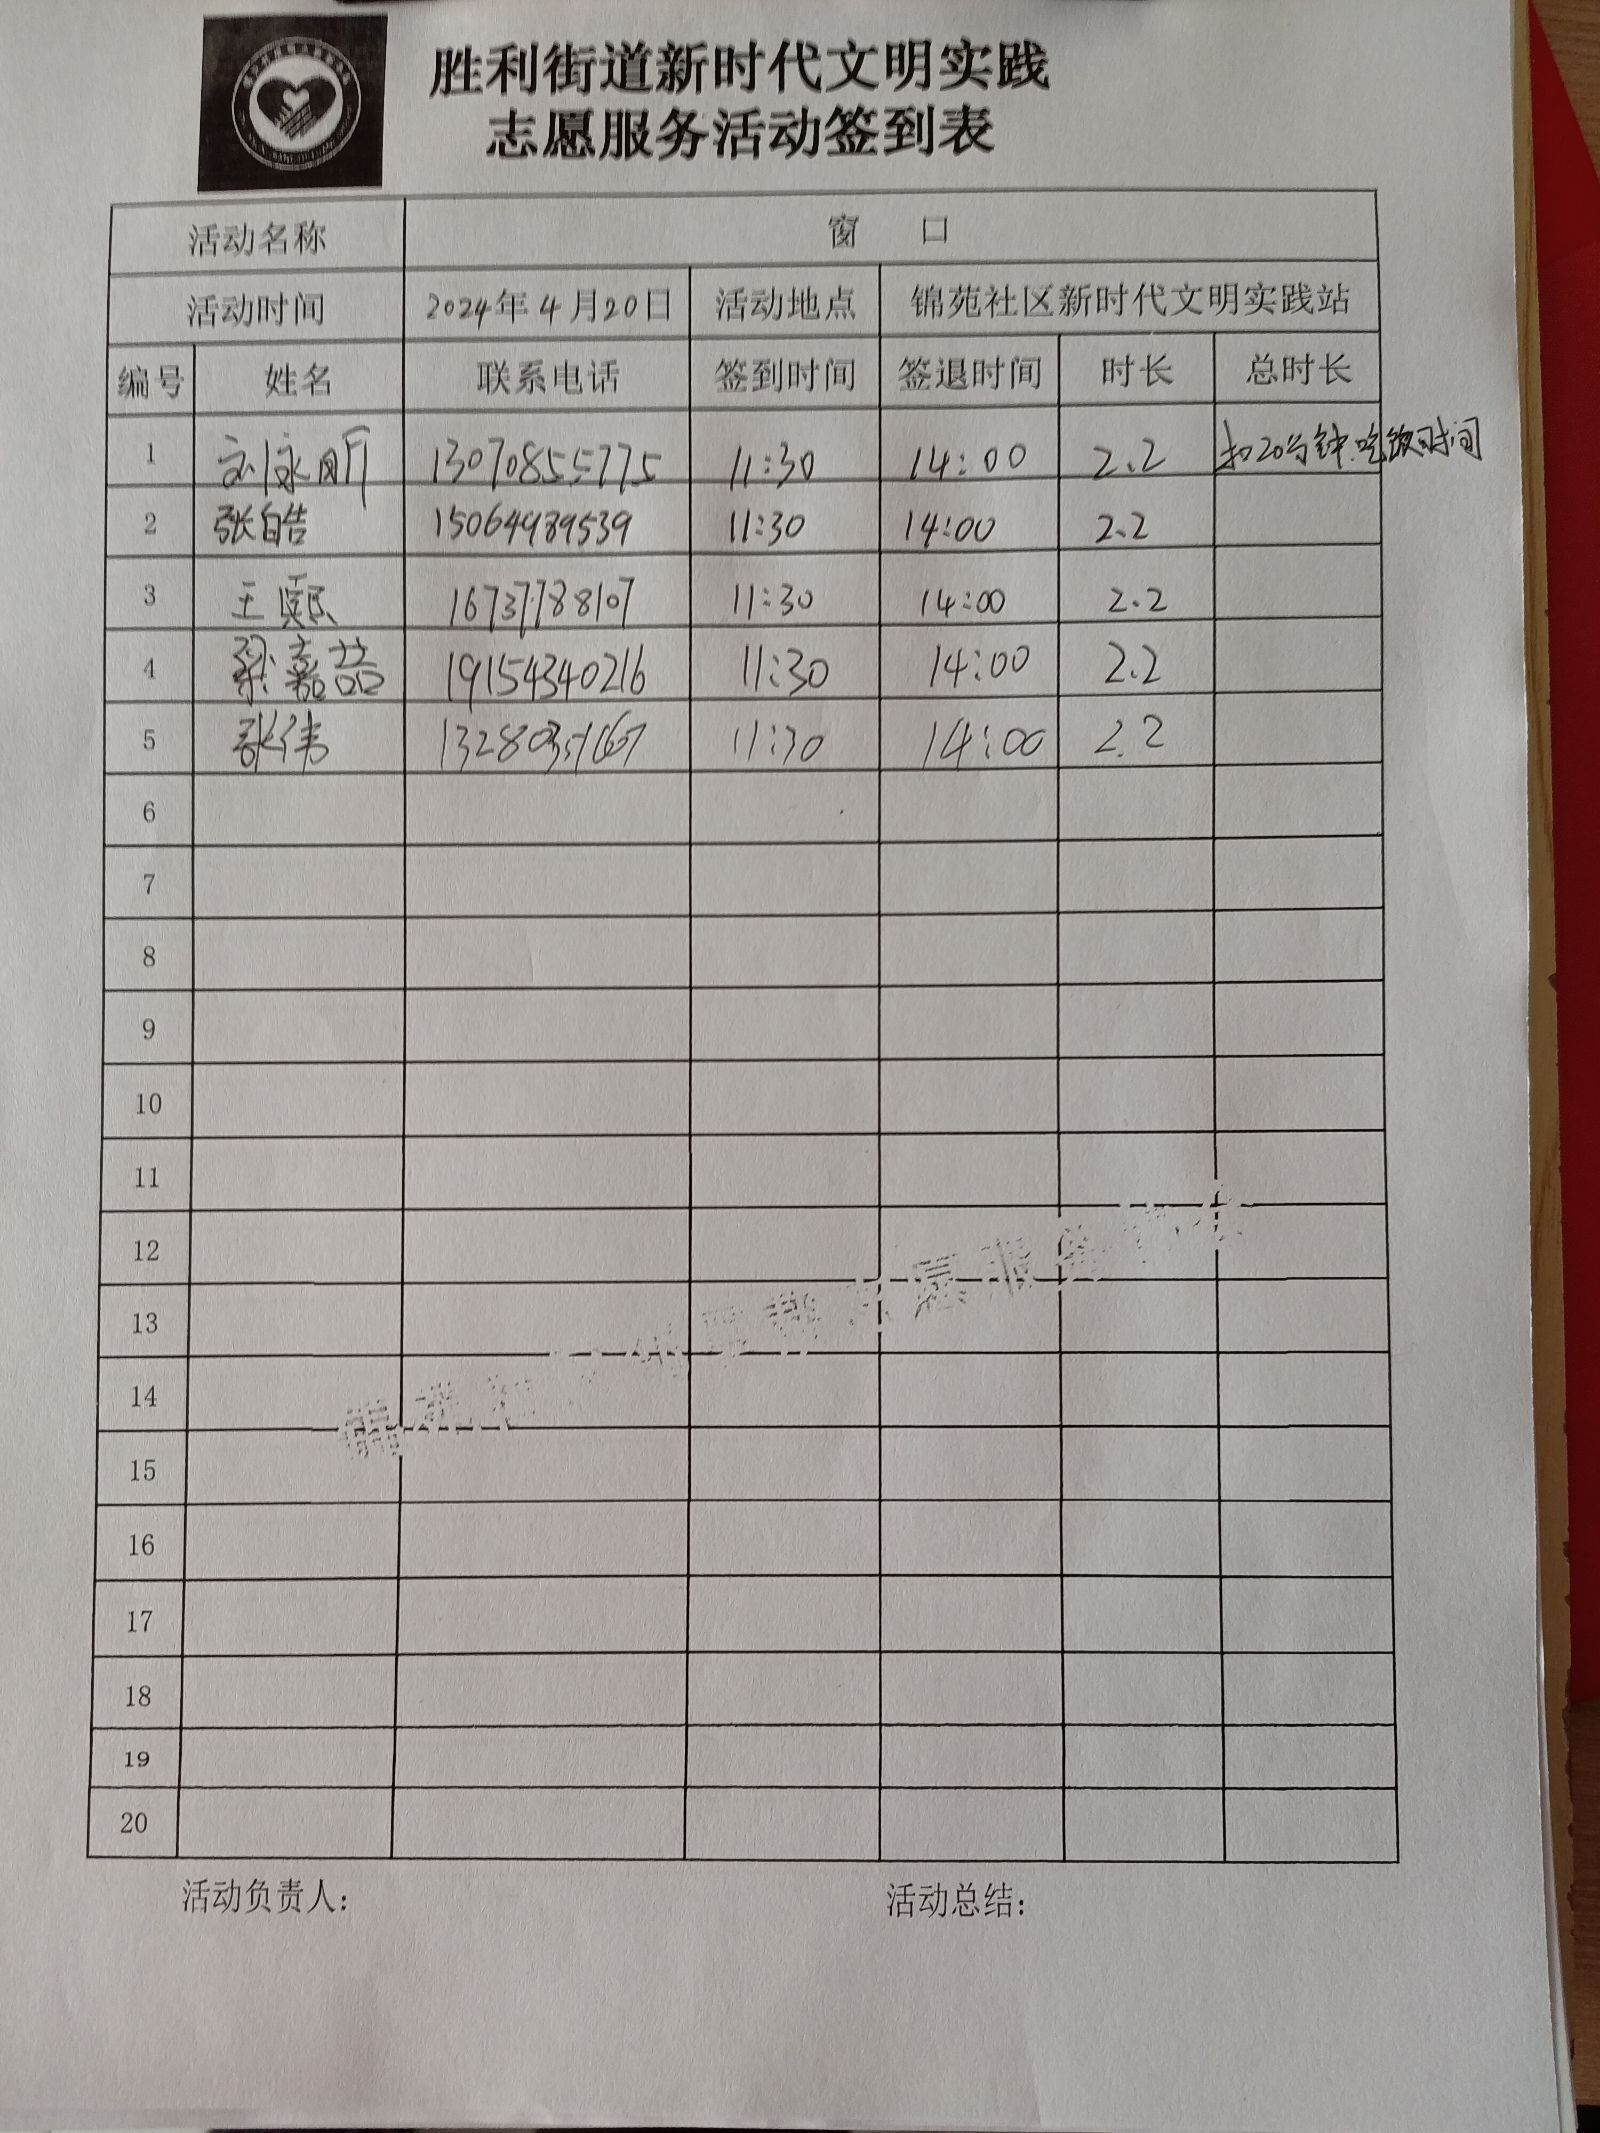 胜利街道新时代文明实践
志愿服务活动签到表
活动名称 窗 口
活动时间 2024年4月20日 活动地点 锦苑社区新时代文明实践站
编号 姓名 联系电话 签到时间 签退时间 时长 总时长
1 刘永明 13070855775 11:30 14:00 2.2 扣20分钟吃饭时间
2 张皓 15064989539 11:30 14:00 2.2
3 王熙 16737788107 11:30 14:00 2.2
4 梁嘉喆 19154340216 11:30 14:00 2.2
5 张伟 11:30 14:00 2.2
6
7
8
9
10
11
12
13
14
15
16
17
18
19
20
活动负责人: 活动总结: